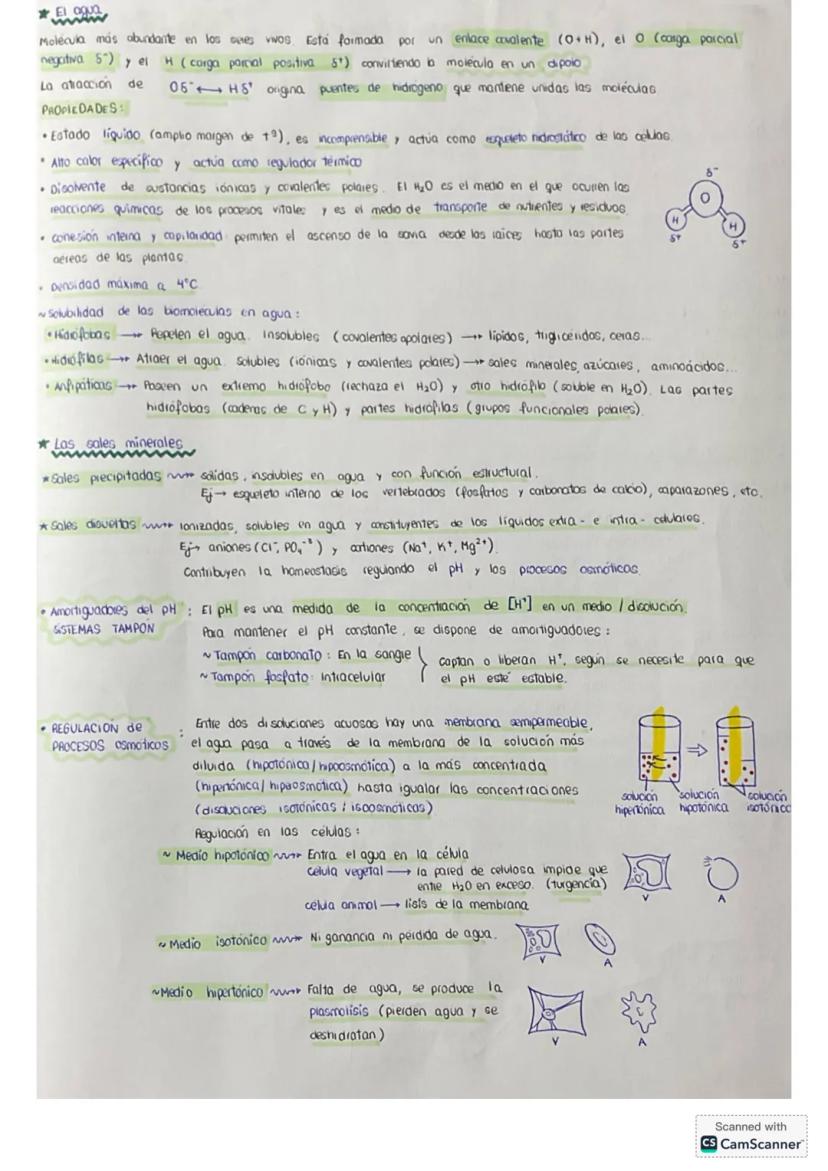 ★ El agua
Molécula más abundante en los seres vivos. Está formada por un enlace covalente (O+H), el O (carga parcial
negativa δ⁻) y el H (carga parcial positiva δ⁺) convirtiendo la molécula en un dipolo
La atracción de Oδ⁻ ⟷ Hδ⁺ origina puentes de hidrógeno que mantiene unidas las moléculas
PROPIEDADES:
• Estado líquido (amplio margen de Tª), es incomprensible y actúa como esqueleto hidrostático de las células.
• Alto calor específico y actúa como regulador térmico
• Disolvente de sustancias iónicas y covalentes polares. El H₂O es el medio en el que ocurren las
reacciones químicas de los procesos vitales y es el medio de transporte de nutrientes y residuos.
• Cohesión interna y capilaridad permiten el ascenso de la savia desde las raíces hasta las partes
aéreas de las plantas.
• Densidad máxima a 4°C
δ⁻
O
H H
δ⁺ δ⁺
~ Solubilidad de las biomoléculas en agua:
• Hidrófobas → Repelen el agua. Insolubles (covalentes apolares) → lípidos, triglicéridos, ceras...
• Hidrófilas → Atraer el agua. Solubles (iónicas y covalentes polares) → sales minerales, azúcares, aminoácidos...
• Anfipáticas → Poseen un extremo hidrófobo (rechaza el H₂O) y otro hidrófilo (soluble en H₂O). Las partes
hidrófobas (cadenas de C y H) y partes hidrófilas (grupos funcionales polares).
★ Las sales minerales
★ Sales precipitadas → sólidas, insolubles en agua y con función estructural.
Ej → esqueleto interno de los vertebrados (fosfatos y carbonatos de calcio), caparazones, etc.
★ Sales disueltas → ionizadas, solubles en agua y constituyentes de los líquidos extra- e intra- celulares.
Ej → aniones (Cl⁻, PO₄⁻³) y cationes (Na⁺, K⁺, Mg²⁺).
Contribuyen la homeostasis regulando el pH y los procesos osmóticos.
• Amortiguadores del pH : El pH es una medida de la concentración de [H⁺] en un medio / disolución.
SISTEMAS TAMPÓN
Para mantener el pH constante, se dispone de amortiguadores:
~ Tampón carbonato: En la sangre
~ Tampón fosfato: intracelular
} captan o liberan H⁺, según se necesite para que
el pH esté estable.
• REGULACIÓN de
PROCESOS OSMÓTICOS :
Entre dos disoluciones acuosas hay una membrana semipermeable,
el agua pasa a través de la membrana de la solución más
diluida (hipotónica/hipoosmótica) a la más concentrada
(hipertónica/hiperosmótica) hasta igualar las concentraciones
(disoluciones isotónicas / isoosmóticas)
solución hipertónica
solución hipotónica
solución isotónica
Regulación en las células:
~ Medio hipotónico → Entra el agua en la célula
célula vegetal → la pared de celulosa impide que
entre H₂O en exceso. (turgencia)
célula animal → lisis de la membrana
V A
~ Medio isotónico → Ni ganancia ni pérdida de agua.
V A
~ Medio hipertónico → Falta de agua, se produce la
plasmólisis (pierden agua y se
deshidratan)
V A
Scanned with
CS CamScanner